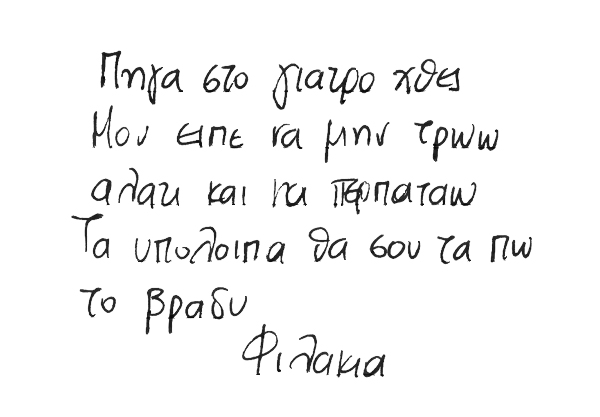 Πηγα στο γιατρο χθες
Μου ειπε να μην τρωω
αλατι και να περπαταω
Τα υπολοιπα θα σου τα πω
το βραδυ
Φιλακια